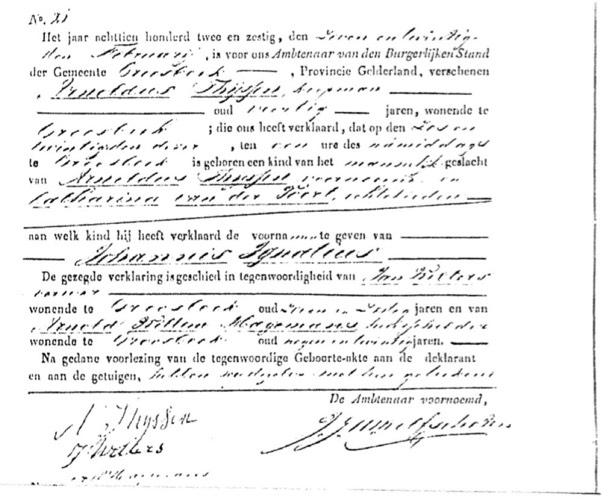 No. XI
Het jaar achttien honderd twee en zestig, den Zeven en twintig-
sten Februarij, is voor ons Ambtenaar van den Burgerlijken Stand
der Gemeente Groesbeek, Provincie Gelderland, verschenen
Arnoldus Thijssen, koopman
oud veertig jaren, wonende te
Groesbeek; die ons heeft verklaard, dat op den Zes en
twintigsten dezer, ten een ure des namiddags
te Groesbeek is geboren een kind van het mannelijk geslacht
van Arnoldus Thijssen voornoemd en
Catharina van der echtelieden
aan welk kind hij heeft verklaard de voornamen te geven van
Johannis Ignatius
De gezegde verklaring is geschied in tegenwoordigheid van Jan
wonende te Groesbeek oud en jaren en van
Arnold Willem Hagemans
wonende te Groesbeek oud negen en twintig jaren.
Na gedane voorlezing van de tegenwoordige Geboorte-akte aan de deklarant
en aan de getuigen, hebben met ons geteekend
De Ambtenaar voornoemd,
A Thyssen